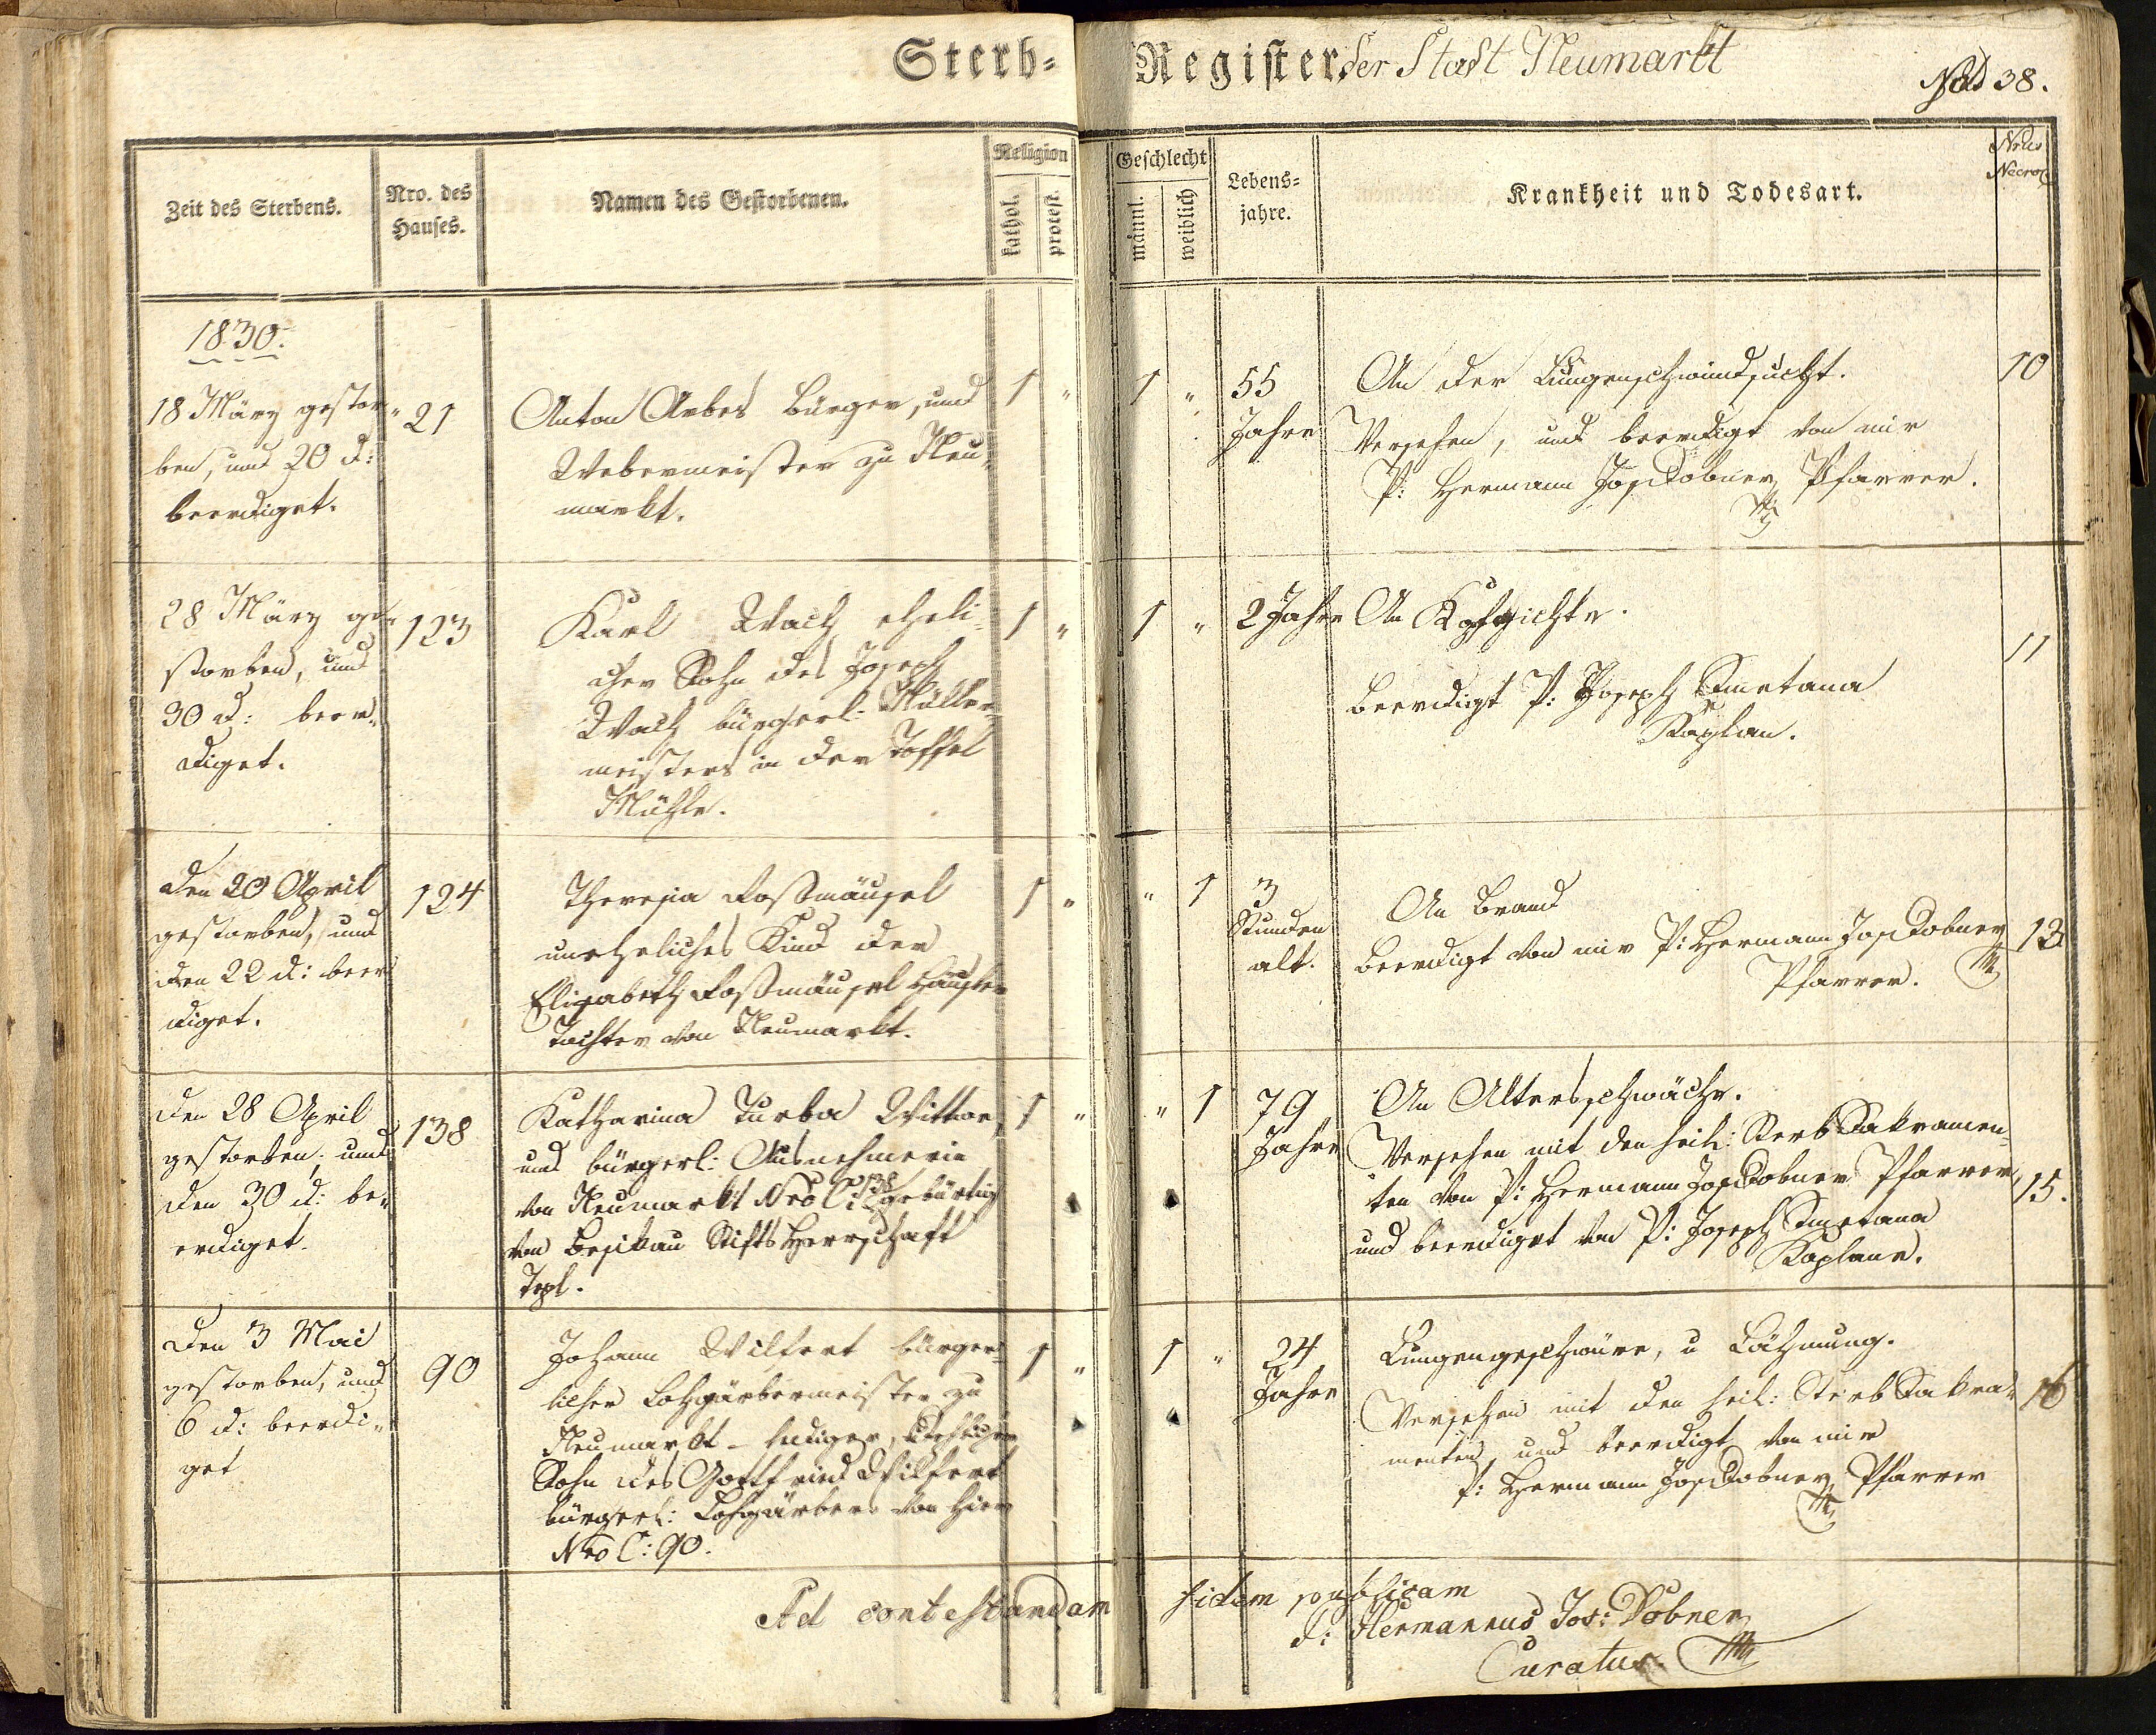 Sterb-Register der Stadt Neumarkt
38.
Zeit des Sterbens.
Nro. des
Hauses.
Namen des Gestorbenen.
Religion
kathol.
protest.
Geschlecht
männl.
weiblich
Lebens-
jahre.
Krankheit und Todesart.
1830.
18 März gestor-
ben, und 20 d:
beerdiget.
21
Anton Arbes bürger, und
Webermeister zu Neu-
markt.
1 "
1 "
55
Jahre
An der Lungenschwindsucht.
Versehen, und beerdigt von mir
P: Hermann Jos Dobner Pfarrer.
10
28 März ge-
storben, und
30 d: beer-
diget.
123
Karl Wach eheli-
cher Sohn des Joseph
Wach bürgerl: Müller-
meisters in der Toffel
Mühle.
1 "
1 "
2 Jahre
An Kopfgichte.
beerdigt P: Joseph Smetana
Kaplan.
11
den 20 April
gestorben, und
den 22 d: beer
diget.
124
Theresia Roßmäusel
uneheliches Kind der
Elisabeth Roßmäusel Häusler
Tochter von Neumarkt.
1 "
" 1
3
Stunden
alt.
An Brand
beerdigt von mir P: Hermann Jos Dobner
Pfarrer.
13
den 28 April
gestorben, und
den 30 d: be-
erdiget.
138
Katharina Turba Wittwe,
und bürgerl: Ausnehmerin
von Neumarkt Nro C: 138 gebürtig
von Besikau Stifts Herrschaft
Tepl.
1 "
" 1
79
Jahre
An Altersschwäche.
Versehen mit den heil: Sterb Sakramen-
ten von P: Hermann Jos Dobner Pfarrer,
und beerdiget von P: Joseph Smetana
Kaplane.
15.
Den 3 Mai
gestorben, und
6 d: beerdi-
get
90
Johann Wilfert bürger-
licher Lohgärbermeister zu
Neumarkt - lediger, ehelicher
Sohn des Gottfried Wilfert
bürgerl: Lohgärbers von hier
Nro C: 90.
1 "
1 "
24
Jahre
Lungengeschwüre, u Lähmung.
Versehen mit den heil: Sterb Sakra-
menten, und beerdigt von mir
P: Hermann Jos Dobner Pfarrer
16
Ad contestandam fidem publicam
P: Hermannus Jos: Dobner
Curatus.